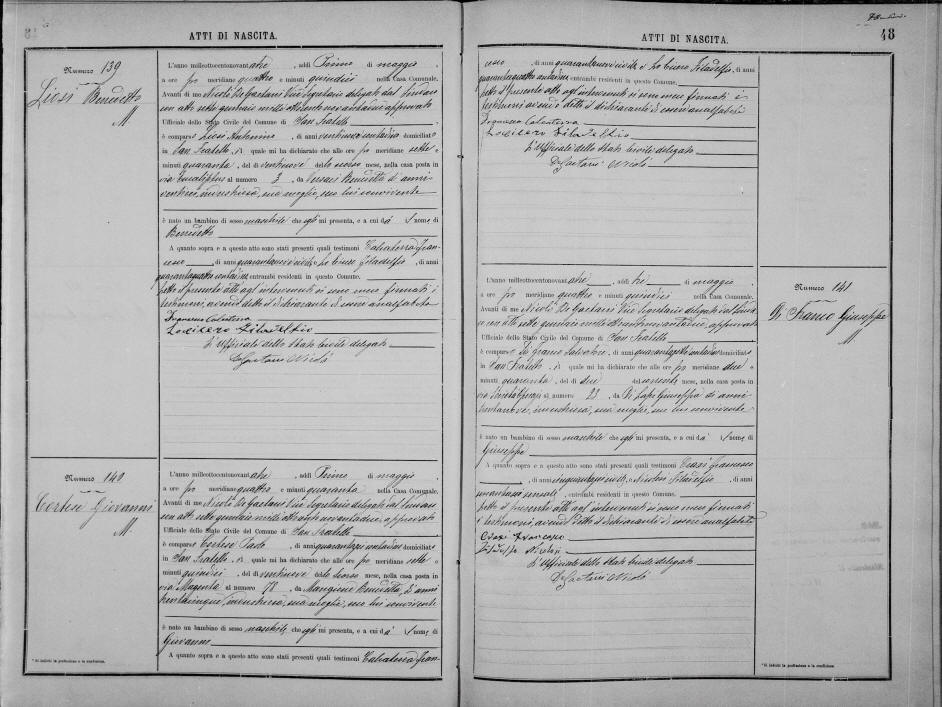 ATTI DI NASCITA.
Numero 139
Liosi Benedetto
M
L'anno milleottocentonovantatre, addì Primo di maggio,
a ore po meridiane quattro e minuti quindici nella Casa Comunale.
Avanti di me Nicolò De Gaetani Vice Segretario delegato dal Sindaco
con atto sette gennaio mille ottocento novantadue approvato
Ufficiale dello Stato Civile del Comune di San Fratello
è comparso Liosi Antonino, di anni contadino domiciliato
in San Fratello, il quale mi ha dichiarato che alle ore po meridiane sette e
minuti quaranta, del dì ventinove dello scorso mese, nella casa posta in
via Eucaliptus al numero 3, da Benedetta di anni
ventitre, industriosa, sua moglie, seco lui convivente
è nato un bambino di sesso maschile che egli mi presenta, e a cui dà il nome di
Benedetto
A quanto sopra e a questo atto sono stati presenti quali testimoni Calcaterra Fran-
cesco, di anni quarantanove e Lo Cicero Filadelfio, di anni
quarantaquattro contadini, entrambi residenti in questo Comune.
Letto il presente atto agl'intervenuti si sono meco firmati i
testimoni, avendo detto il dichiarante di essere analfabeta
Francesco Calcaterra
Locicero Filadelfio
L'Ufficiale dello Stato Civile delegato
De Gaetani Nicolò
Numero 140
Cortese Giovanni
M
L'anno milleottocentonovantatre, addì Primo di maggio,
a ore po meridiane quattro e minuti quaranta nella Casa Comunale.
Avanti di me Nicolò De Gaetani Vice Segretario delegato dal Sindaco
con atto sette gennaio mille ottocento novantadue, approvato
Ufficiale dello Stato Civile del Comune di San Fratello
è comparso Cortese Paolo, di anni quarantasei contadino domiciliato
in San Fratello, il quale mi ha dichiarato che alle ore po meridiane sette e
minuti quindici, del dì ventinove dello scorso mese, nella casa posta in
via Magenta al numero 78, da Mangione Benedetta, di anni
trentacinque, industriosa, sua moglie, seco lui convivente
è nato un bambino di sesso maschile, che egli mi presenta, e a cui dà il nome di
Giovanni
A quanto sopra e a questo atto sono stati presenti quali testimoni Calcaterra Fran-
* Si indichi la professione o la condizione.
48
ATTI DI NASCITA.
cesco, di anni quarantanove e Lo Cicero Filadelfio, di anni
quarantaquattro contadini, entrambi residenti in questo Comune.
Letto il presente atto agl'intervenuti si sono meco firmati i
testimoni avendo detto il dichiarante di essere analfabeta
Francesco Calcaterra
Locicero Filadelfio
L'Ufficiale dello Stato Civile delegato
De Gaetani Nicolò
Numero 141
Di Franco Giuseppe
M
L'anno milleottocentonovantatre, addì tre di maggio,
a ore po meridiane quattro e minuti quindici nella Casa Comunale.
Avanti di me Nicolò De Gaetani Vice Segretario delegato dal Sindaco
con atto sette gennaio mille ottocento novantadue, approvato
Ufficiale dello Stato Civile del Comune di San Fratello
è comparso Di Franco Salvatore, di anni contadino domiciliato
in San Fratello, il quale mi ha dichiarato che alle ore po meridiane due e
minuti quaranta, del dì due del corrente mese, nella casa posta in
via al numero 23, da Di Giuseppa di anni
trentanove, industriosa, sua moglie, seco lui convivente
è nato un bambino di sesso maschile che egli mi presenta, e a cui dà il nome di
Giuseppe
A quanto sopra e a questo atto sono stati presenti quali testimoni Francesco
, di anni e Filadelfio, di anni
, entrambi residenti in questo Comune.
Letto il presente atto agl'intervenuti si sono meco firmati
i testimoni, avendo detto il dichiarante di essere analfabeta
Francesco
L'Ufficiale dello Stato Civile delegato
De Gaetani Nicolò
* Si indichi la professione o la condizione.